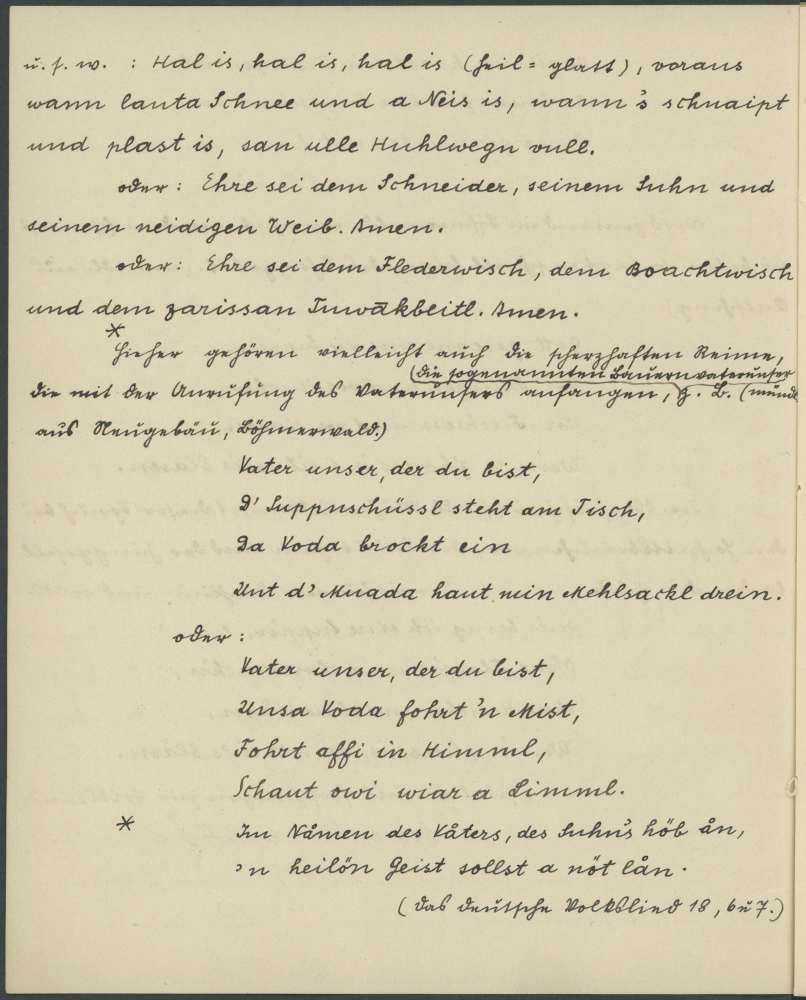 u. s. w. : Hal is, hal is, hal is (heil = glatt), voraus
wann lauta Schnee und a Neis is, wann's schnaipt
und plast is, san ulle Huhlwegn vull.
oder : Ehre sei dem Schneider, seinem Suhn und
seinem neidigen Weib. Amen.
oder : Ehre sei dem Flederwisch, dem Boachtwisch
und dem zarissan Tuwākbeitl. Amen.
*
Hieher gehören vielleicht auch die scherzhaften Reime,
(die sogenannten Bauernvaterunser
die mit der Anrufung des Vaterunsers anfangen, z. B. (mündl
aus Neugebäu, Böhmerwald.)
Vater unser, der du bist,
D' Suppnschüssl steht am Tisch,
Da Voda brockt ein
Unt d' Muada haut min Mehlsackl drein.
oder :
Vater unser, der du bist,
Unsa Voda fohrt 'n Mist,
Fohrt affi in Himml,
Schaut owi wiar a Limml.
* Im Nåmen des Våters, des Suhn's höb ån,
'n heilön Geist sollst a nöt lån.
(Das deutsche Volkslied 18, 6 u 7.)